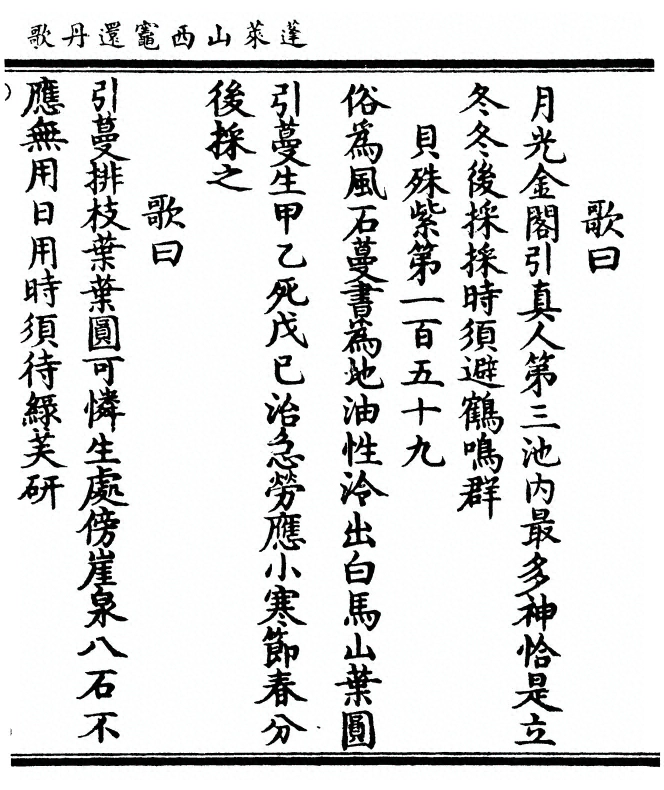 蓬萊山西竈還丹歌
歌曰
月光金閣引真人第三池内最多神恰是立
冬冬後採採時須避鶴鳴群
貝殊紫第一百五十九
俗為風石蔓書為地油性冷出白馬山葉圓
引蔓生甲乙死戊巳治急勞應小寒節春分
後採之
歌曰
引蔓排枝葉葉圓可憐生處傍崖泉八石不
應無用日用時須待綠芙研